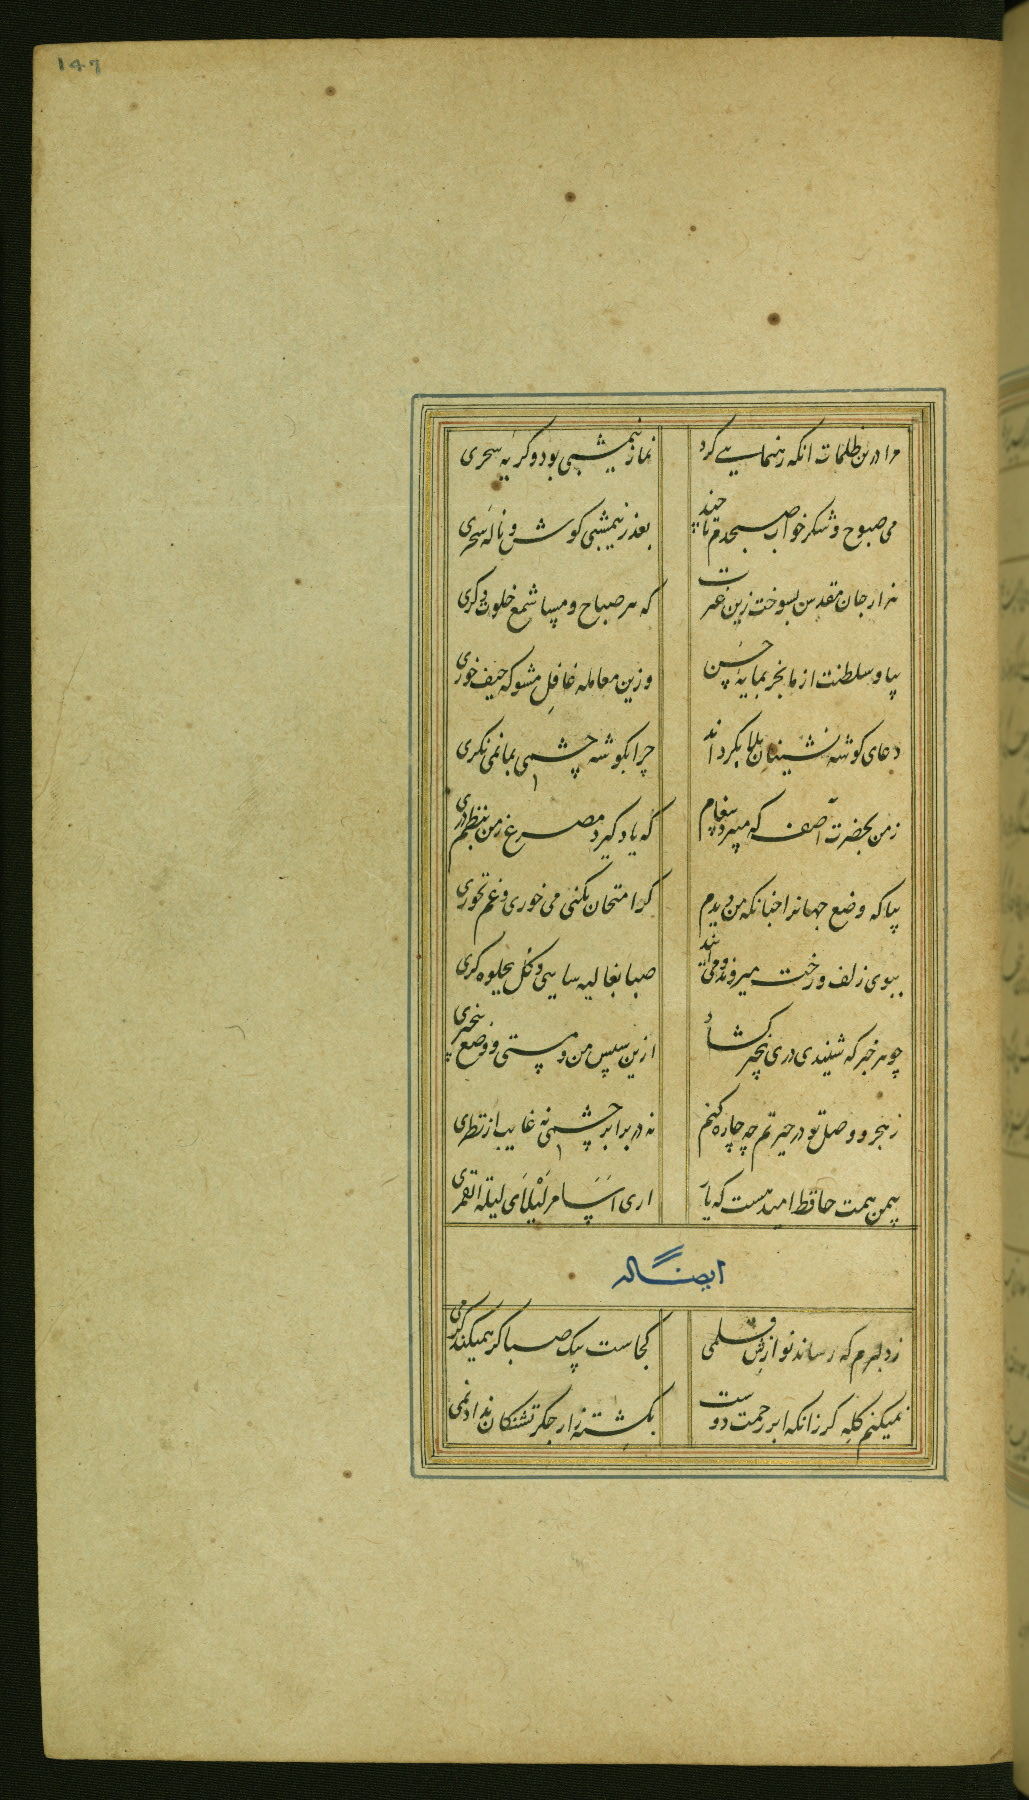 147
مرا درین ظلمات انکه رهنمایی کرد نماز نیمشبی بود و کریه سحری
می صبوح و شکر خواب صبحدم تا چند بعذر نیمشبی کوش و ناله سحری
هزار جان مقدس بسوخت زین غیرت که هر صباح و مسا شمع خلوت دکری
بیا و سلطنت از ما بخر بمایه حسن وزین معامله غافل مشو که حیف خوری
دعای کوشه نشینان بلا بکرداند چرا بکوشه چشمی بما نمی نکری
ز من بحضرت آصف که میبرد پیغام که یاد کیرد مصرع ز من بنظم دری
بیا که وضع جهانرا چنانکه من دیدم کر امتحان بکنی می خوری و غم نخوری
ببوی زلف و رخت میروند و می آیند صبا بغالیه سایی و کل بجلوه کری
چو هر خبر که شنیدی دری بحیر کشاد ازین سپس من و مستی و وضع بیخبری
ز هجر و وصل تو در حیرتم چه چاره کنم نه در برابر چشمی نه غایب از نظری
بیمن همت حافظ امید هست که باز اری اسامر لیلای لیلة القمری
ایضا له
ز دلبرم که رساند نوازش قلمی کجاست پیک صبا کر همیکند کرمی
نمیکنم کله کرزانکه ابر رحمت دوست بکشته زار جکر تشنکان نداد نمی